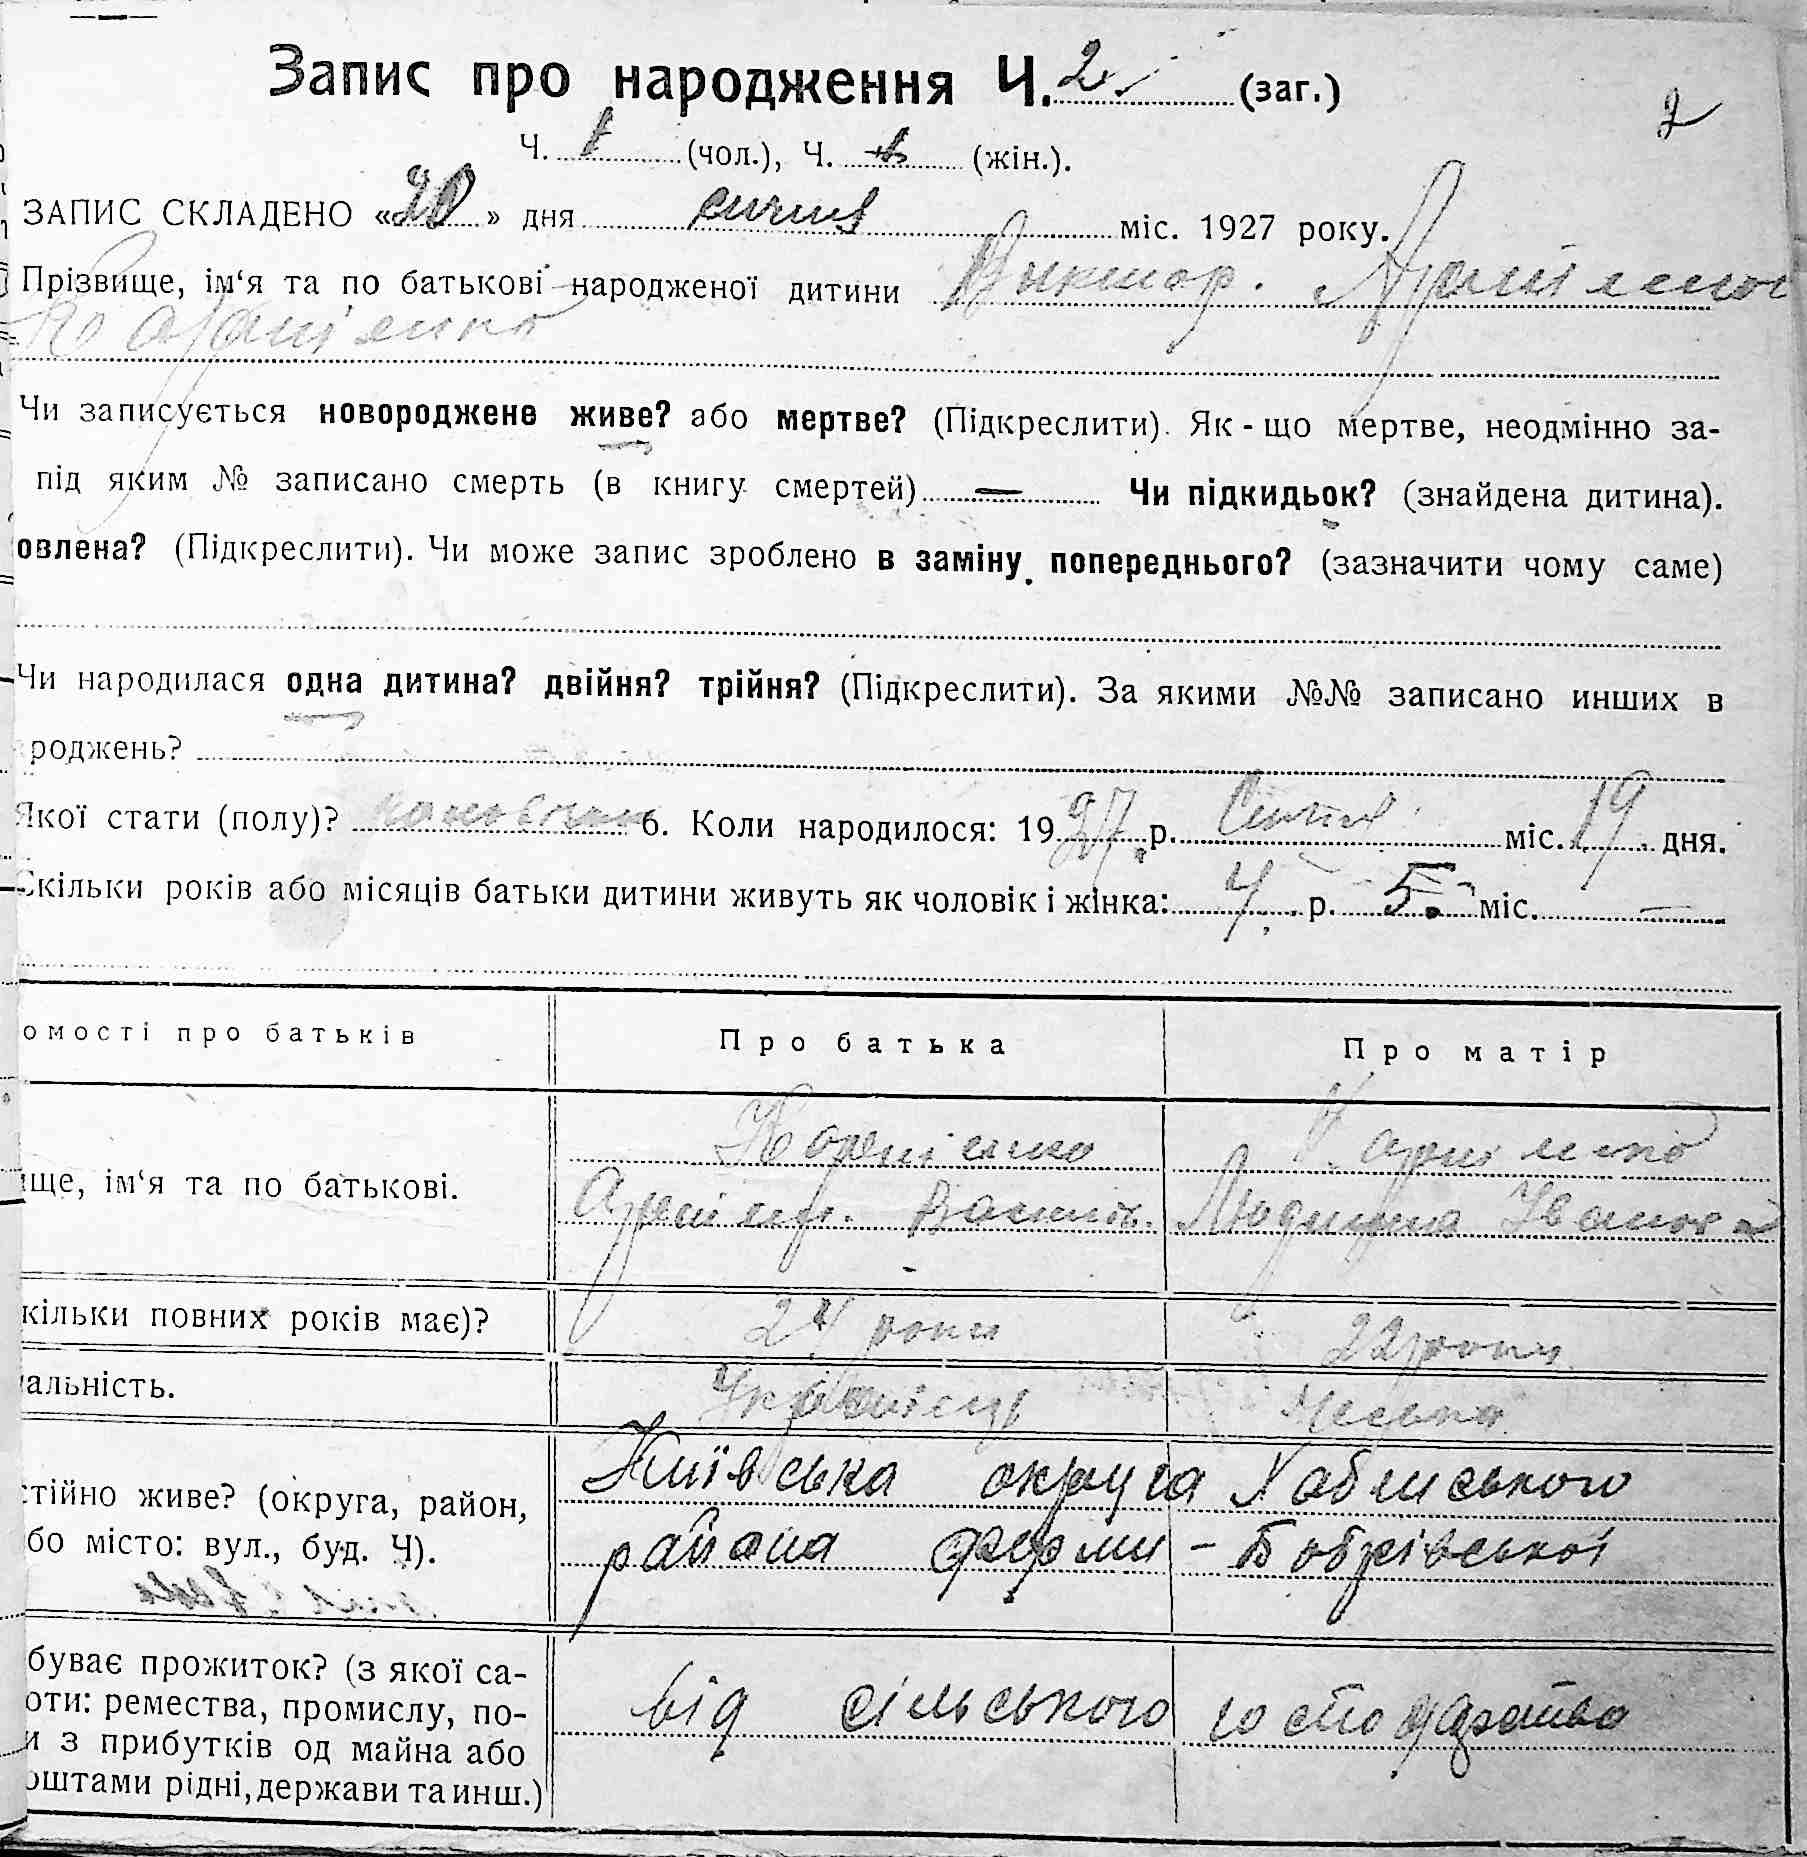 Запис про народження Ч. 2. (заг.) 2
Ч. 1 (чол.), Ч. (жін.).
ЗАПИС СКЛАДЕНО «20» дня січня міс. 1927 року.
Прізвище, ім‘я та по батькові народженої дитини Виктор.
Чи записується новороджене живе? або мертве? (Підкреслити). Як - що мертве, неодмінно за-
під яким № записано смерть (в книгу смертей) — Чи підкидьок? (знайдена дитина).
овлена? (Підкреслити). Чи може запис зроблено в заміну попереднього? (зазначити чому саме)
Чи народилася одна дитина? двійня? трійня? (Підкреслити). За якими №№ записано инших в
роджень?
Якої стати (полу)? 6. Коли народилося: 1927 р. Січня міс. 19 дня.
Скільки років або місяців батьки дитини живуть як чоловік і жінка: 4 р. 5 міс. —
омості про батьків Про батька Про матір
ище, ім‘я та по батькові. Людмила Іванов
кільки повних років має)? 24 роки 22 роки
альність. Українець Чешка
Київська округа Хабнського
стійно живе? (округа, район,
района ферми - Бобрівської
бо місто: вул., буд. Ч).
буває прожиток? (з якої са-
оти: ремества, промислу, по- від сільського господарства
и з прибутків од майна або
оштами рідні, держави та инш.)